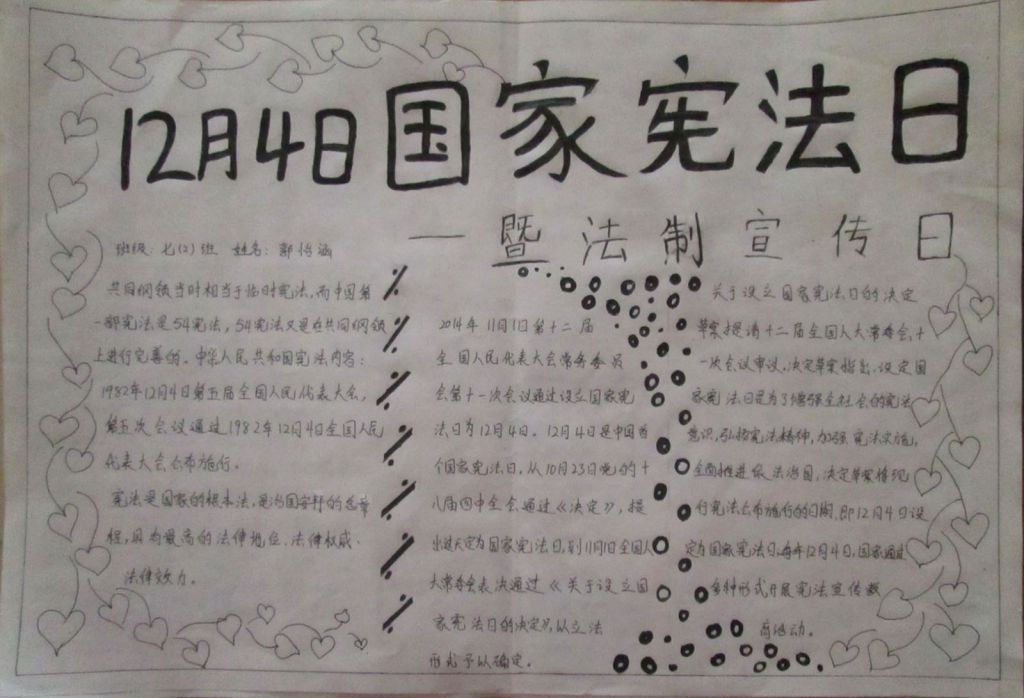 12月4日国家宪法日
一暨法制宣传日
班级：七(2)班 姓名：郭怡涵
共同纲领当时相当于临时宪法，而中国第
一部宪法是54宪法，54宪法又是在共同纲领
上进行完善的。中华人民共和国宪法内容：
1982年12月4日第五届全国人民代表大会，
第五次会议通过1982年12月4日全国人民
代表大会公布施行。
宪法是国家的根本法，是治国安邦的总章
程，具有最高的法律地位、法律权威、
法律效力。
2014年11月1日第十二届
全国人民代表大会常务委员
会第十一次会议通过设立国家宪
法日为12月4日。12月4日是中国首
个国家宪法日。从10月23日晚的十
八届四中全会通过《决定》，提
出进定为国家宪法日，到11月1日全国人
大常委会表决通过《关于设立国
家宪法日的决定》，以立法
形式予以确定。
关于设立国家宪法日的决定
草案提请十二届全国人大常委会，十
一次会议审议，决定草案指出，设定国
家宪法日是为了增强全社会的宪法
意识，弘扬宪法精神，加强宪法实施，
全面推进依法治国，决定草案将现
行宪法公布施行的日期，即12月4日设
定为国家宪法日，每年12月4日，国家通过
多种形式开展宪法宣传教
育活动。